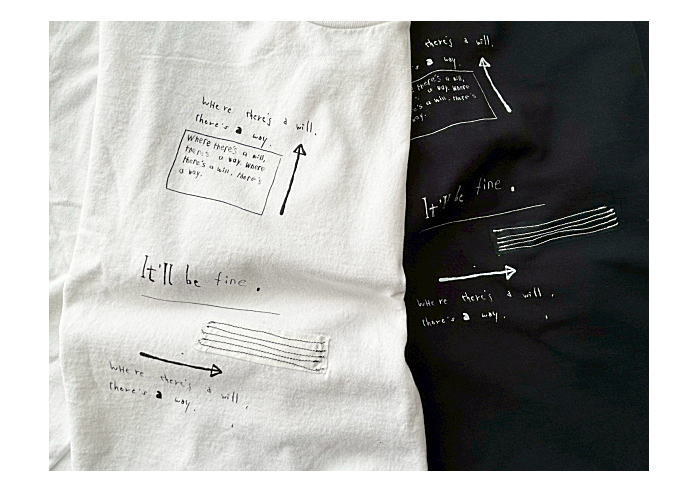 WHere there's a will,
there's a way.
Where there's a will,
there's a way. Where
there's a will, there's
a way.
It'll be fine.
WHere there's a will,
there's a way.
there's a will,
a way.
there's a will,
a way. Where
a will, there's
way.
It'll be fine.
WHere there's a will,
there's a way.